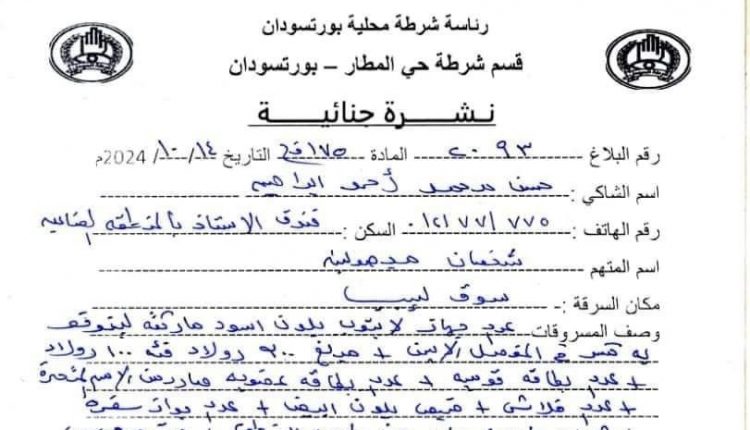 رئاسة شرطة محلية بورتسودان
قسم شرطة حي المطار – بورتسودان
نشرة جنائية
رقم البلاغ ٢٠٩٣ المادة ١٧٥ ق ج التاريخ ١٤/١٠/2024م
اسم الشاكي : حسن محمد أحمد ابراهيم
رقم الهاتف : ٠١٢١٧٧١٧٧٥ السكن : فندق الاستاذ بالمنطقه الصناعيه
اسم المتهم شخصان مجهولين
مكان السرقة : سوق ليبيا
وصف المسروقات عدد جهاز لابتوب بلون اسود ماركة
به كسر في المفصل الايمن + مبلغ ٣٠٠ دولار فئه ١٠٠ دولار
+ عدد بطاقه قوميه + عدد بطاقه عضويه صادره من الامم المتحدة
+ عدد فلاش + قميص بلون ابيض + عدد جواز سفر